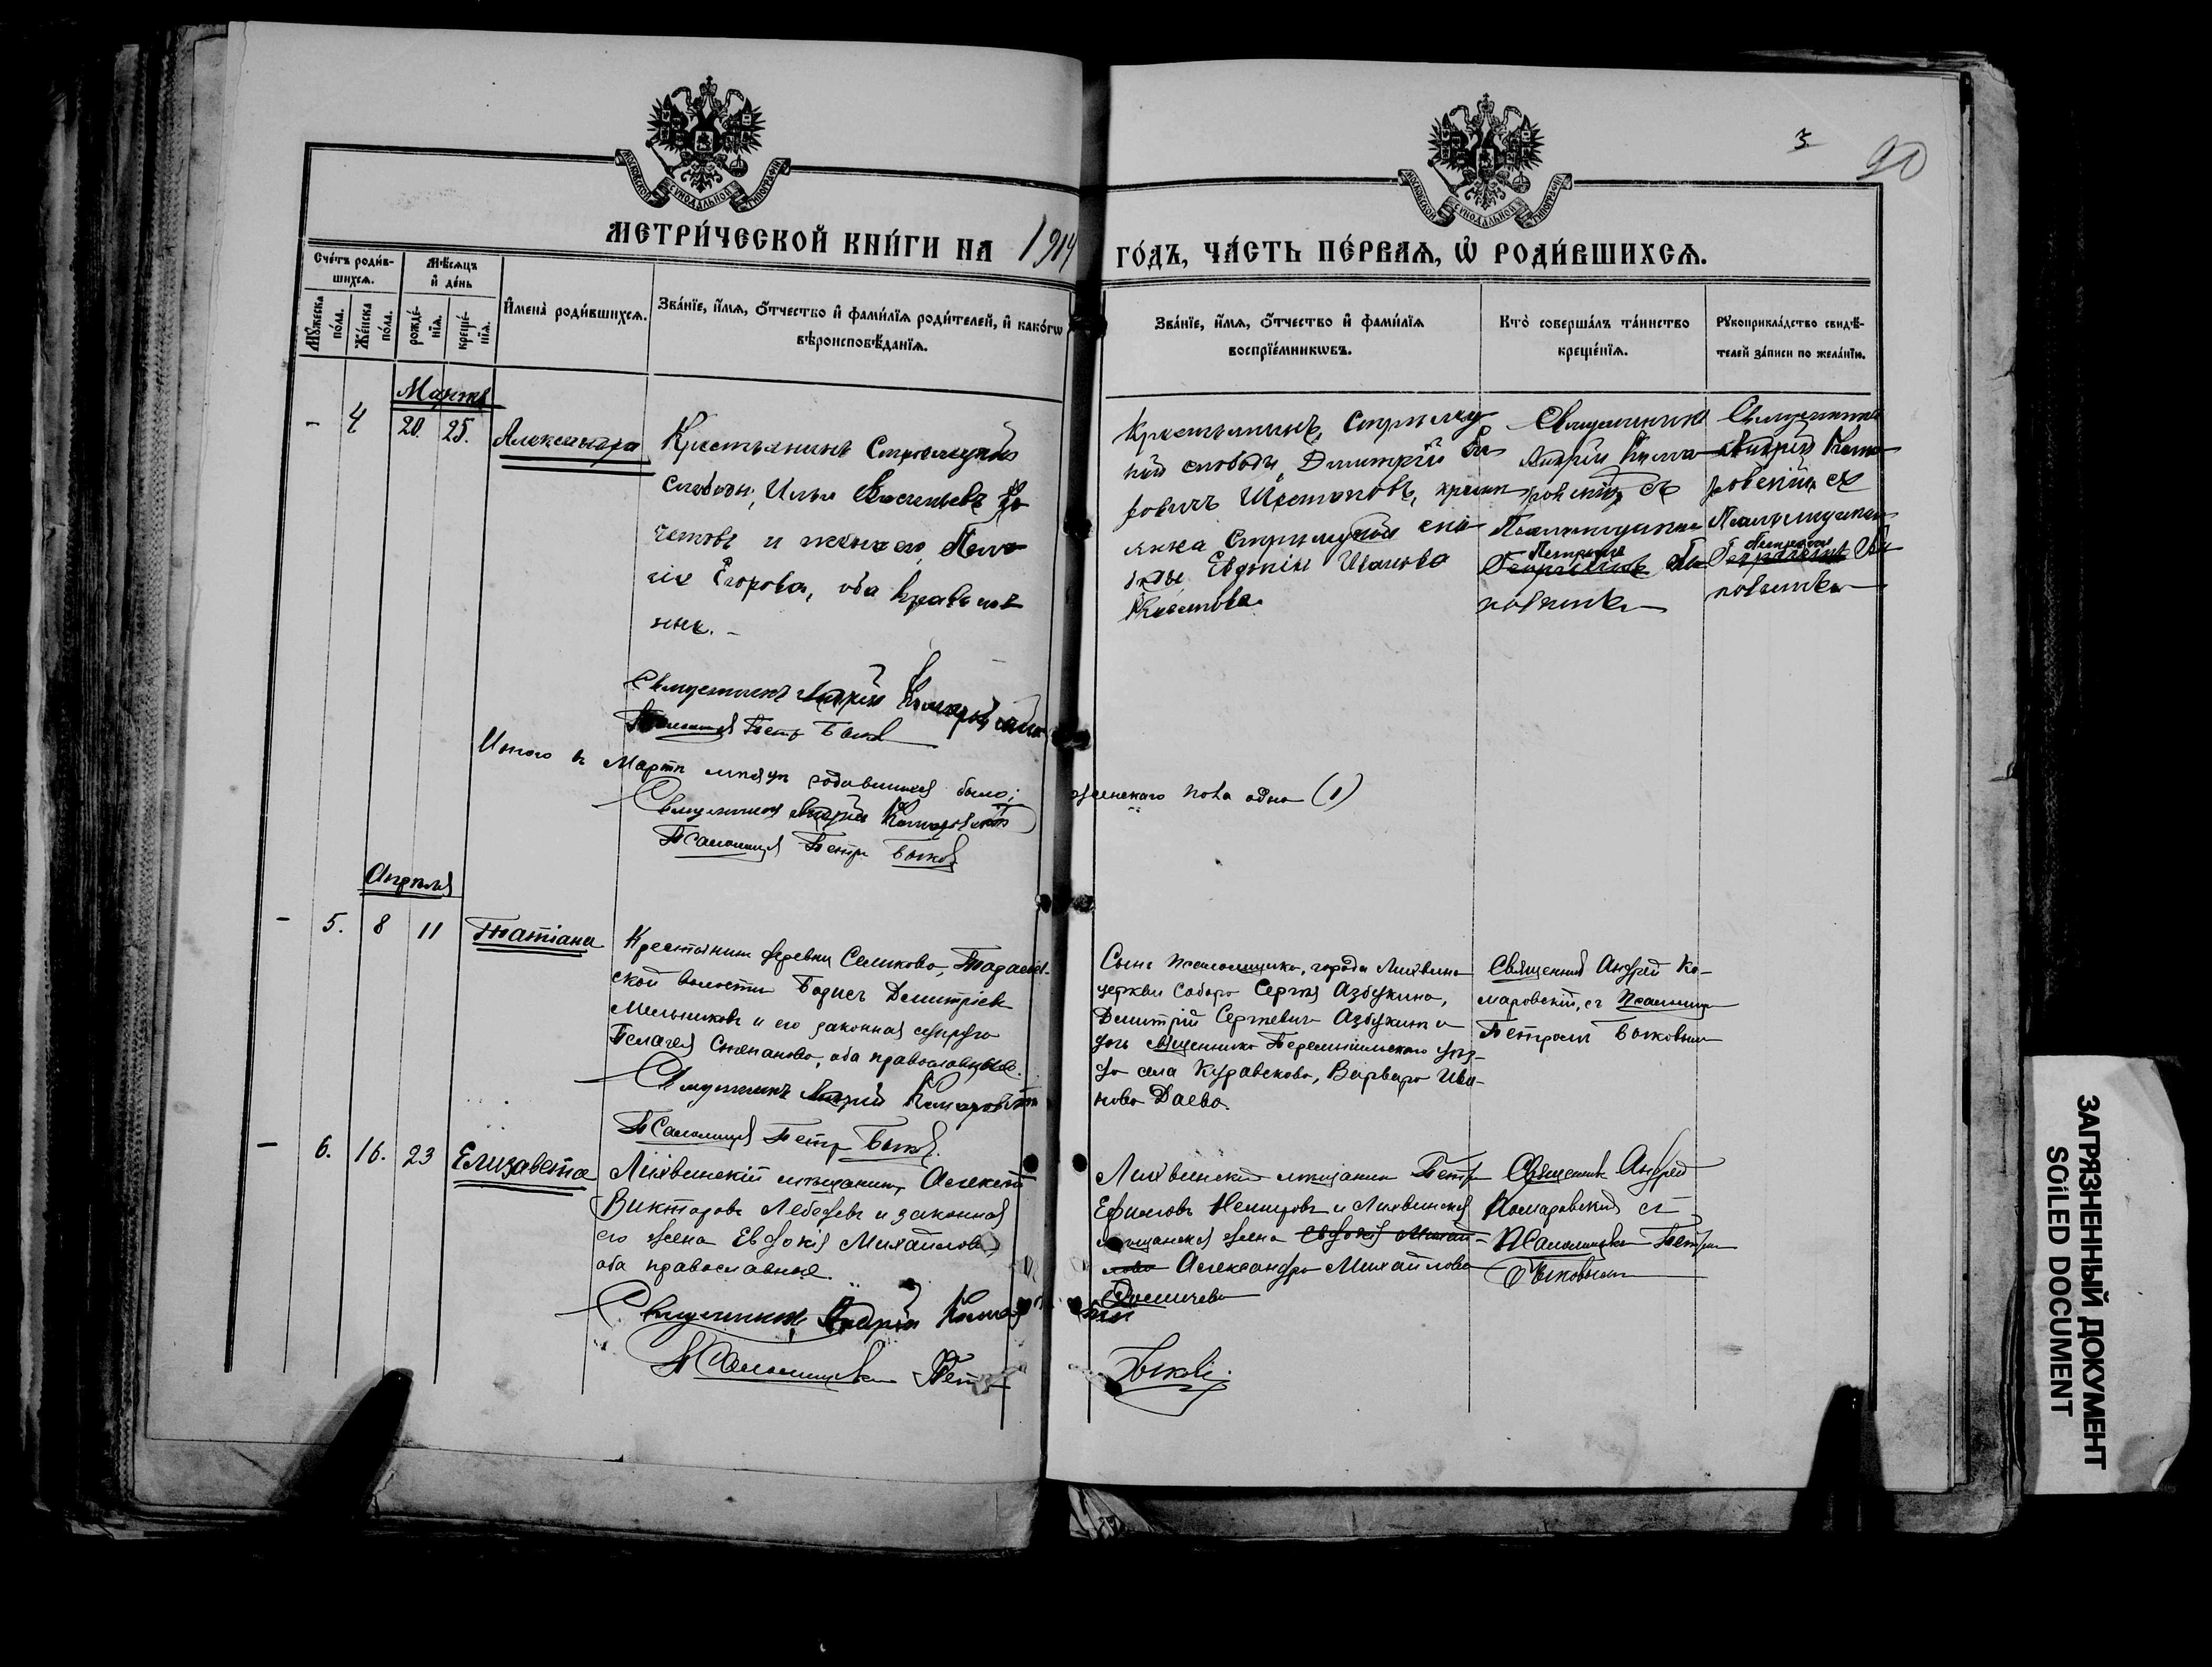 МОСКОВСКОЙ СѴНОДАЛЬНОЙ ТИПОГРАФІИ
МОСКОВСКОЙ СѴНОДАЛЬНОЙ ТИПОГРАФІИ
3
90
МЕТРИ́ЧЕСКОЙ КНИ́ГИ НА 1914 ГО́ДЪ, ЧА́СТЬ ПЕ́РВАѦ, Ѡ҆ РОДИ́ВШИХСѦ.
Сче́тъ роди́в-
шихсѧ.
Мꙋ́жеска по́ла.
Же́нска по́ла.
Мѣ́сѧцъ
и҆ де́нь
рожде́-
нїѧ.
креще́-
нїѧ.
И҆мена̀ роди́вшихсѧ.
Зва́нїе, и҆́мѧ, ѻ҆́тчество и҆ фами́лїѧ роди́телей, и҆ како́гѡ
вѣроисповѣ́данїѧ.
Зва́нїе, и҆́мѧ, ѻ҆́тчество и҆ фами́лїѧ
воспрїе́мникѡвъ.
Кто̀ соверша́лъ та́инство
креще́нїѧ.
Рꙋкоприкла́дство свидѣ́-
телей за́писи по жела́нїю.
Марта
- 4 20. 25. Александра
Крестьянинъ Стрѣлецкой
слободы, Илья Васильевъ
и жена его Пела-
гія Егорова, оба православ-
ные. -
Крестьянинъ Стрѣлец-
кой слободы, Димитрій
кресть-
янка Стрѣлецкой сло-
боды Евдокія Иванова
Священникъ
Андрей Кома-
ровскій съ
Псаломщикомъ
Петромъ
Георгіемъ Бы-
ковымъ
Священникъ
Андрей Кома-
ровскій съ
Псаломщикомъ
Петромъ
Георгіемъ Бы-
ковымъ
Священникъ Андрей Комаровскій
Псаломщикъ Петръ Быковъ
Итого въ Мартѣ мѣсяцѣ родившихся было: женскаго пола одна (1)
Священникъ Андрей Комаровскій
Псаломщикъ Петръ Быковъ
Апрѣля
- 5. 8 11 Татіана
Крестьянинъ деревни Селиково,
ской волости Борисъ Димитріевъ
Мельниковъ и его законная супруга
Пелагея Степанова, оба православные.
Священникъ Андрей Комаровскій
Псаломщикъ Петръ Быковъ.
Сынъ псаломщика, города Лихвина
церкви Собора Сергѣя Азбукина,
Димитрій Сергѣевичъ Азбукинъ и
дочь священника Перемышльскаго уѣз-
да села Куравсково, Варвара Ива-
нова Даева.
Священникъ Андрей Ко-
маровскій, съ Псаломщик.
Петромъ Быковымъ
- 6. 16. 23 Елизавета
Лихвинскій мѣщанинъ, Алексѣй
Викторовъ Лебедевъ и законная
его жена Евдокія Михайлова,
оба православные.
Священникъ Андрей Комаровскій
Псаломщикъ Петръ Быковъ.
Лихвинскій мѣщанинъ Петръ
Ефимовъ Немцовъ и Лихвинская
мѣщанская жена Евдокія Михай-
лова Александра Михайлова
Священникъ Андрей
Комаровский съ
Псаломщикомъ Петромъ
Быковымъ
ЗАГРЯЗНЕННЫЙ ДОКУМЕНТ
SOILED DOCUMENT